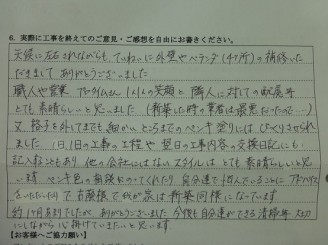 6. 実際に工事を終えてのご意見・ご感想を自由にお書きください。
天候に左右されながらも、ていねいに外壁やベランダ(4ヶ所)の補修いた
だきまして ありがとうございました
職人や営業 アドバイザーさん 1人1人の笑顔と 隣人に対しての配慮等
とても素晴らしいと思いました (新築した時の業者は最悪だったので…)
又、格子を外してまでも細かいところまでのペンキ塗りには びっくりさせられ
ました 1日、1日の工事の工程や 翌日の工事内容の交換日記にも
記入などもあり 他の会社にはない スタイルは とても素晴らしいと思
います ペンキ色の相談にのってくれたり 自分達で悩んでいることに アドバイス
をいただいたりで お蔭様で我が家は新築同様になっています
約1ヶ月お世話になり ありがとうございました 今後も自分達ができる清掃等 大切
にしながら 心掛けていきたいと思います
【お客様へご協力願い】